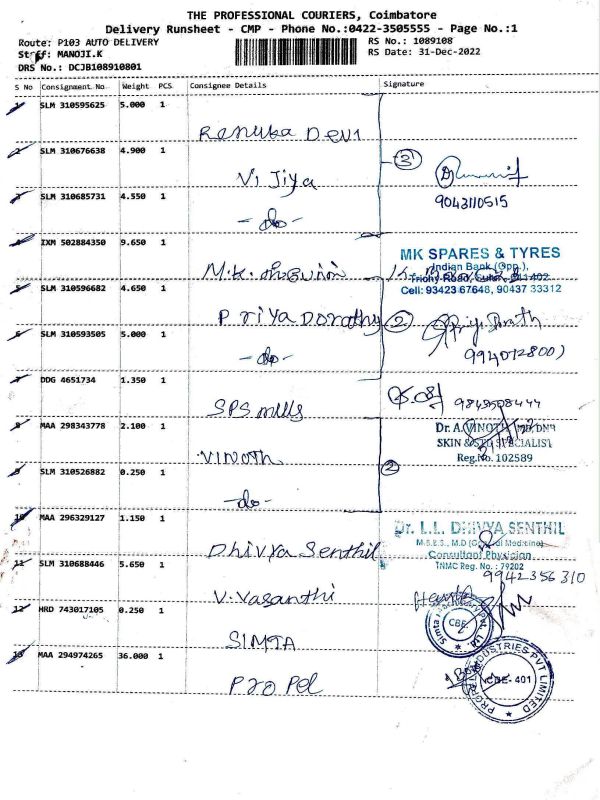 THE PROFESSIONAL COURIERS, Coimbatore
Delivery Runsheet - CMP - Phone No.:0422-3505555 - Page No.:1
Route: P103 AUTO DELIVERY RS No.: 1089108
Staff: MANOJI.K RS Date: 31-Dec-2022
DRS No.: DCJB108910801
S No Consignment No Weight PCS Consignee Details Signature
1 SLM 310595625 5.000 1
Renuka Devi
2 SLM 310676638 4.900 1 3
Vi Jiya
3 SLM 310685731 4.550 1 9043110515
-do-
4 IXM 502884350 9.650 1 MK SPARES & TYRES
Indian Bank (Opp.),
M.K.
Trichy Road,
5 SLM 310596682 4.650 1 Cell: 93423 67648, 90437 33312
Priya Dorathy 2
6 SLM 310593505 5.000 1
-do-
7 DDG 4651734 1.350 1
SPS mills 9843508444
8 MAA 298343778 2.100 1 Dr. A. VINOTH MD, DNB
SKIN & STD SPECIALIST
VINOTH Reg.No. 102589
9 SLM 310526882 0.250 1 2
-do-
10 MAA 296329127 1.150 1 Dr. L.L. DHIVYA SENTHIL
M.B.B.S., M.D (General Medicine)
Dhivya Senthil Consultant Physician
11 SLM 310688446 5.650 1 TNMC Reg. No. : 79202
9942356310
V. Vasanthi
12 HRD 743017105 0.250 1 CBE
SIMTA
13 MAA 294974265 36.000 1 INDUSTRIES PVT LIMITED
Propel CBE- 401